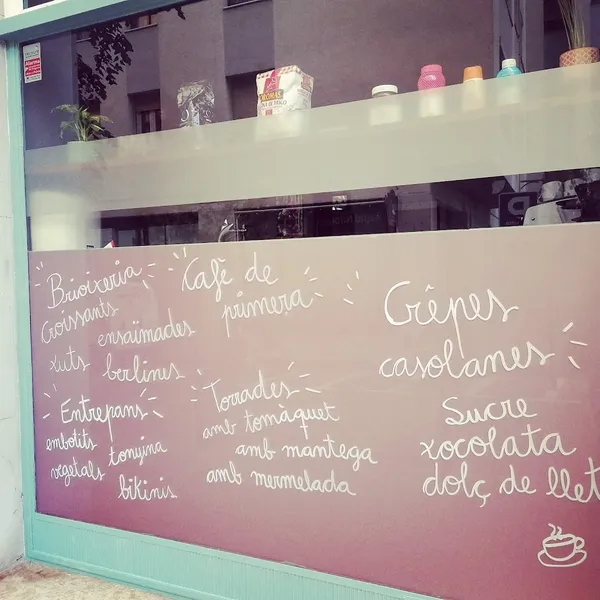 Brioixeria
Croissants
ensaïmades
xuts berlines
Cafè de
primera
Crêpes
casolanes
Entrepans
embotits
vegetals tonyina
bikinis
Torrades
amb tomàquet
amb mantega
amb mermelada
Sucre
xocolata
dolç de llet